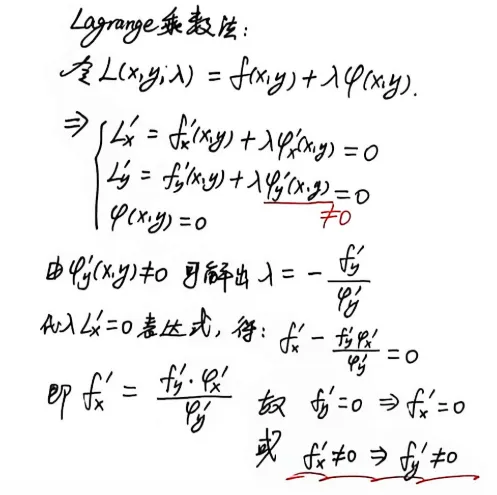 Lagrange乘数法:
令 L(x,y;λ) = f(x,y) + λφ(x,y).
⇒ { L'x = f'x(x,y) + λφ'x(x,y) = 0
L'y = f'y(x,y) + λφ'y(x,y) = 0
φ(x,y) = 0 ≠0
由φ'y(x,y)≠0 可解出 λ = - f'y/φ'y
代入L'x=0 表达式, 得: f'x - f'yφ'x/φ'y = 0
即 f'x = f'y·φ'x/φ'y 故 f'y=0 ⇒ f'x=0
或 f'x≠0 ⇒ f'y≠0